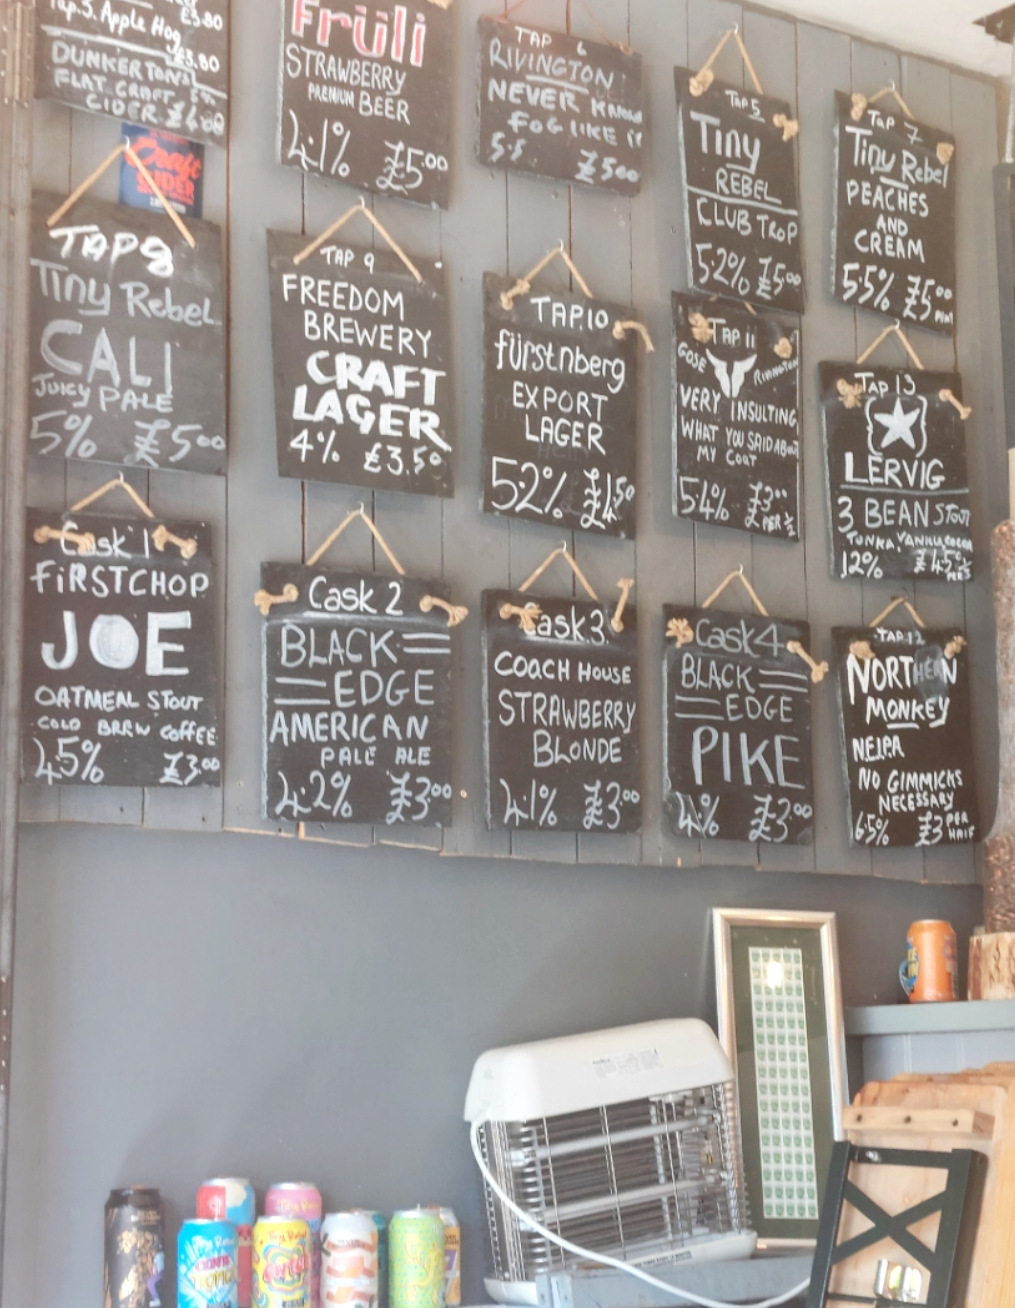 £3.80
Tap.3. Apple Hog
£3.80
DUNKERTONS
FLAT CRAFT
CIDER £4.00
Craft
Früli
STRAWBERRY
PREMIUM BEER
4.1% £5.00
TAP 6
RIVINGTON
NEVER KNOWN
FOG LIKE IT
5.5 £5.00
TAP 5
Tiny
REBEL
CLUB TROP
5.2% £5.00
TAP 7
Tiny Rebel
PEACHES
AND
CREAM
5.5% £5.00
PINT
TAP 8
Tiny Rebel
CALI
JUICY PALE
5% £5.00
TAP 9
FREEDOM
BREWERY
CRAFT
LAGER
4% £3.50
TAP.10
fürstnberg
EXPORT
LAGER
5.2% £4.50
TAP 11
GOSE RIVINGTON
VERY INSULTING
WHAT YOU SAID ABOUT
MY COAT
5.4% £3.00
PER ½
TAP 13
LERVIG
3 BEAN STOUT
TONKA, VANILLA, COCOA
12% £4.50
Cask 1
FIRSTCHOP
JOE
OATMEAL STOUT
COLD BREW COFFEE
4.5% £3.00
Cask 2
BLACK
EDGE
AMERICAN
PALE ALE
4.2% £3.00
Cask 3
COACH HOUSE
STRAWBERRY
BLONDE
4.1% £3.00
Cask 4
BLACK
EDGE
PIKE
4% £3.00
TAP 12
NORTHERN
MONKEY
NEIPA
NO GIMMICKS
NECESSARY
6.5% £3 PER
HALF
Tiny Rebel